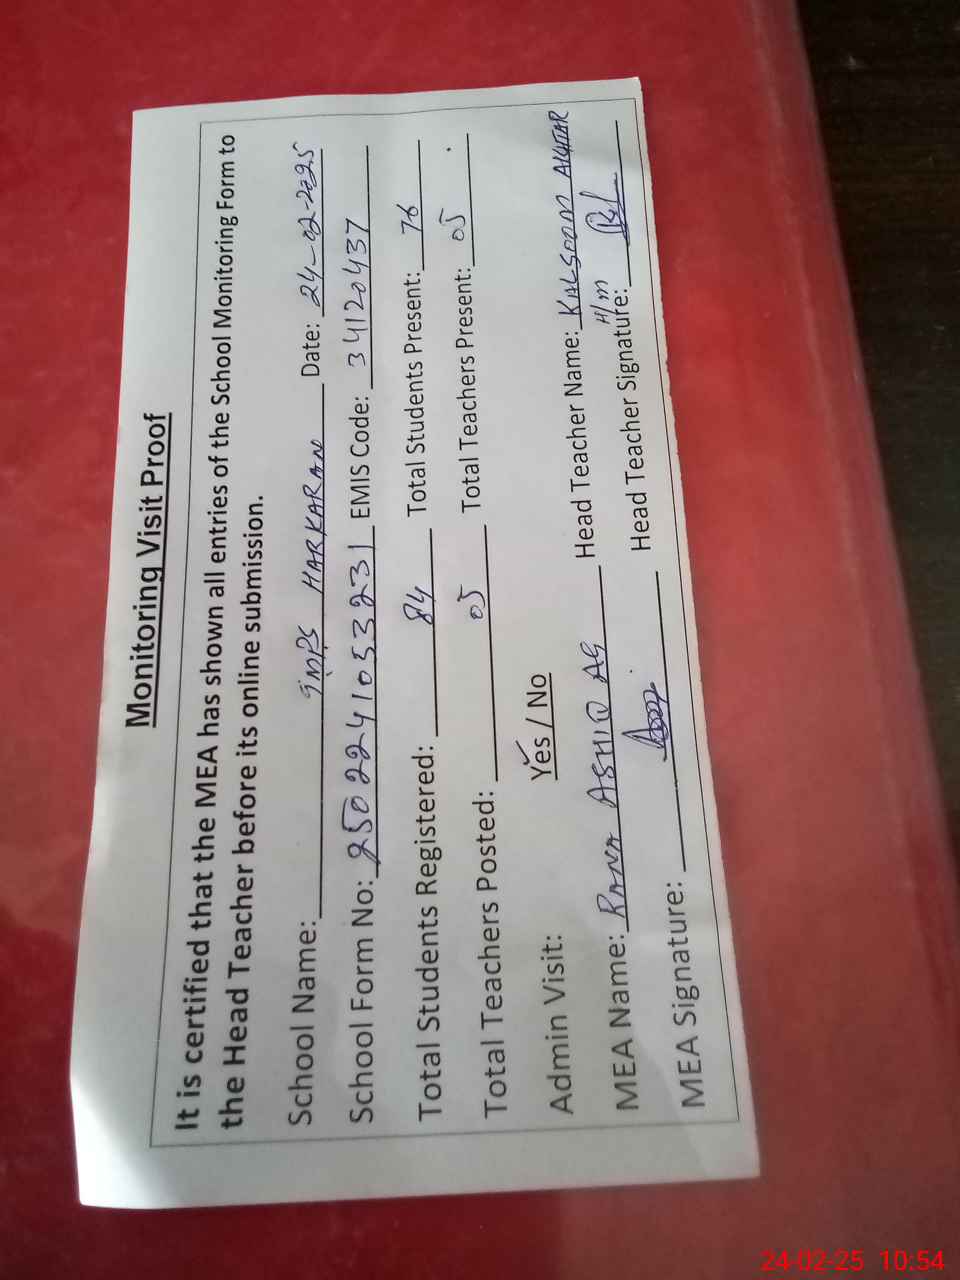 Monitoring Visit Proof
It is certified that the MEA has shown all entries of the School Monitoring Form to
the Head Teacher before its online submission.
School Name: GMPS HARKARAN Date: 24-02-2025
School Form No: 2502241053231 EMIS Code: 34120437
Total Students Registered: 84 Total Students Present: 76
Total Teachers Posted: 05 Total Teachers Present: 05
Admin Visit: Yes / No
MEA Name: RANA ASHIQ AS Head Teacher Name: KALSOOM AKHTAR
H/M
MEA Signature: Head Teacher Signature:
24-02-25 10:54